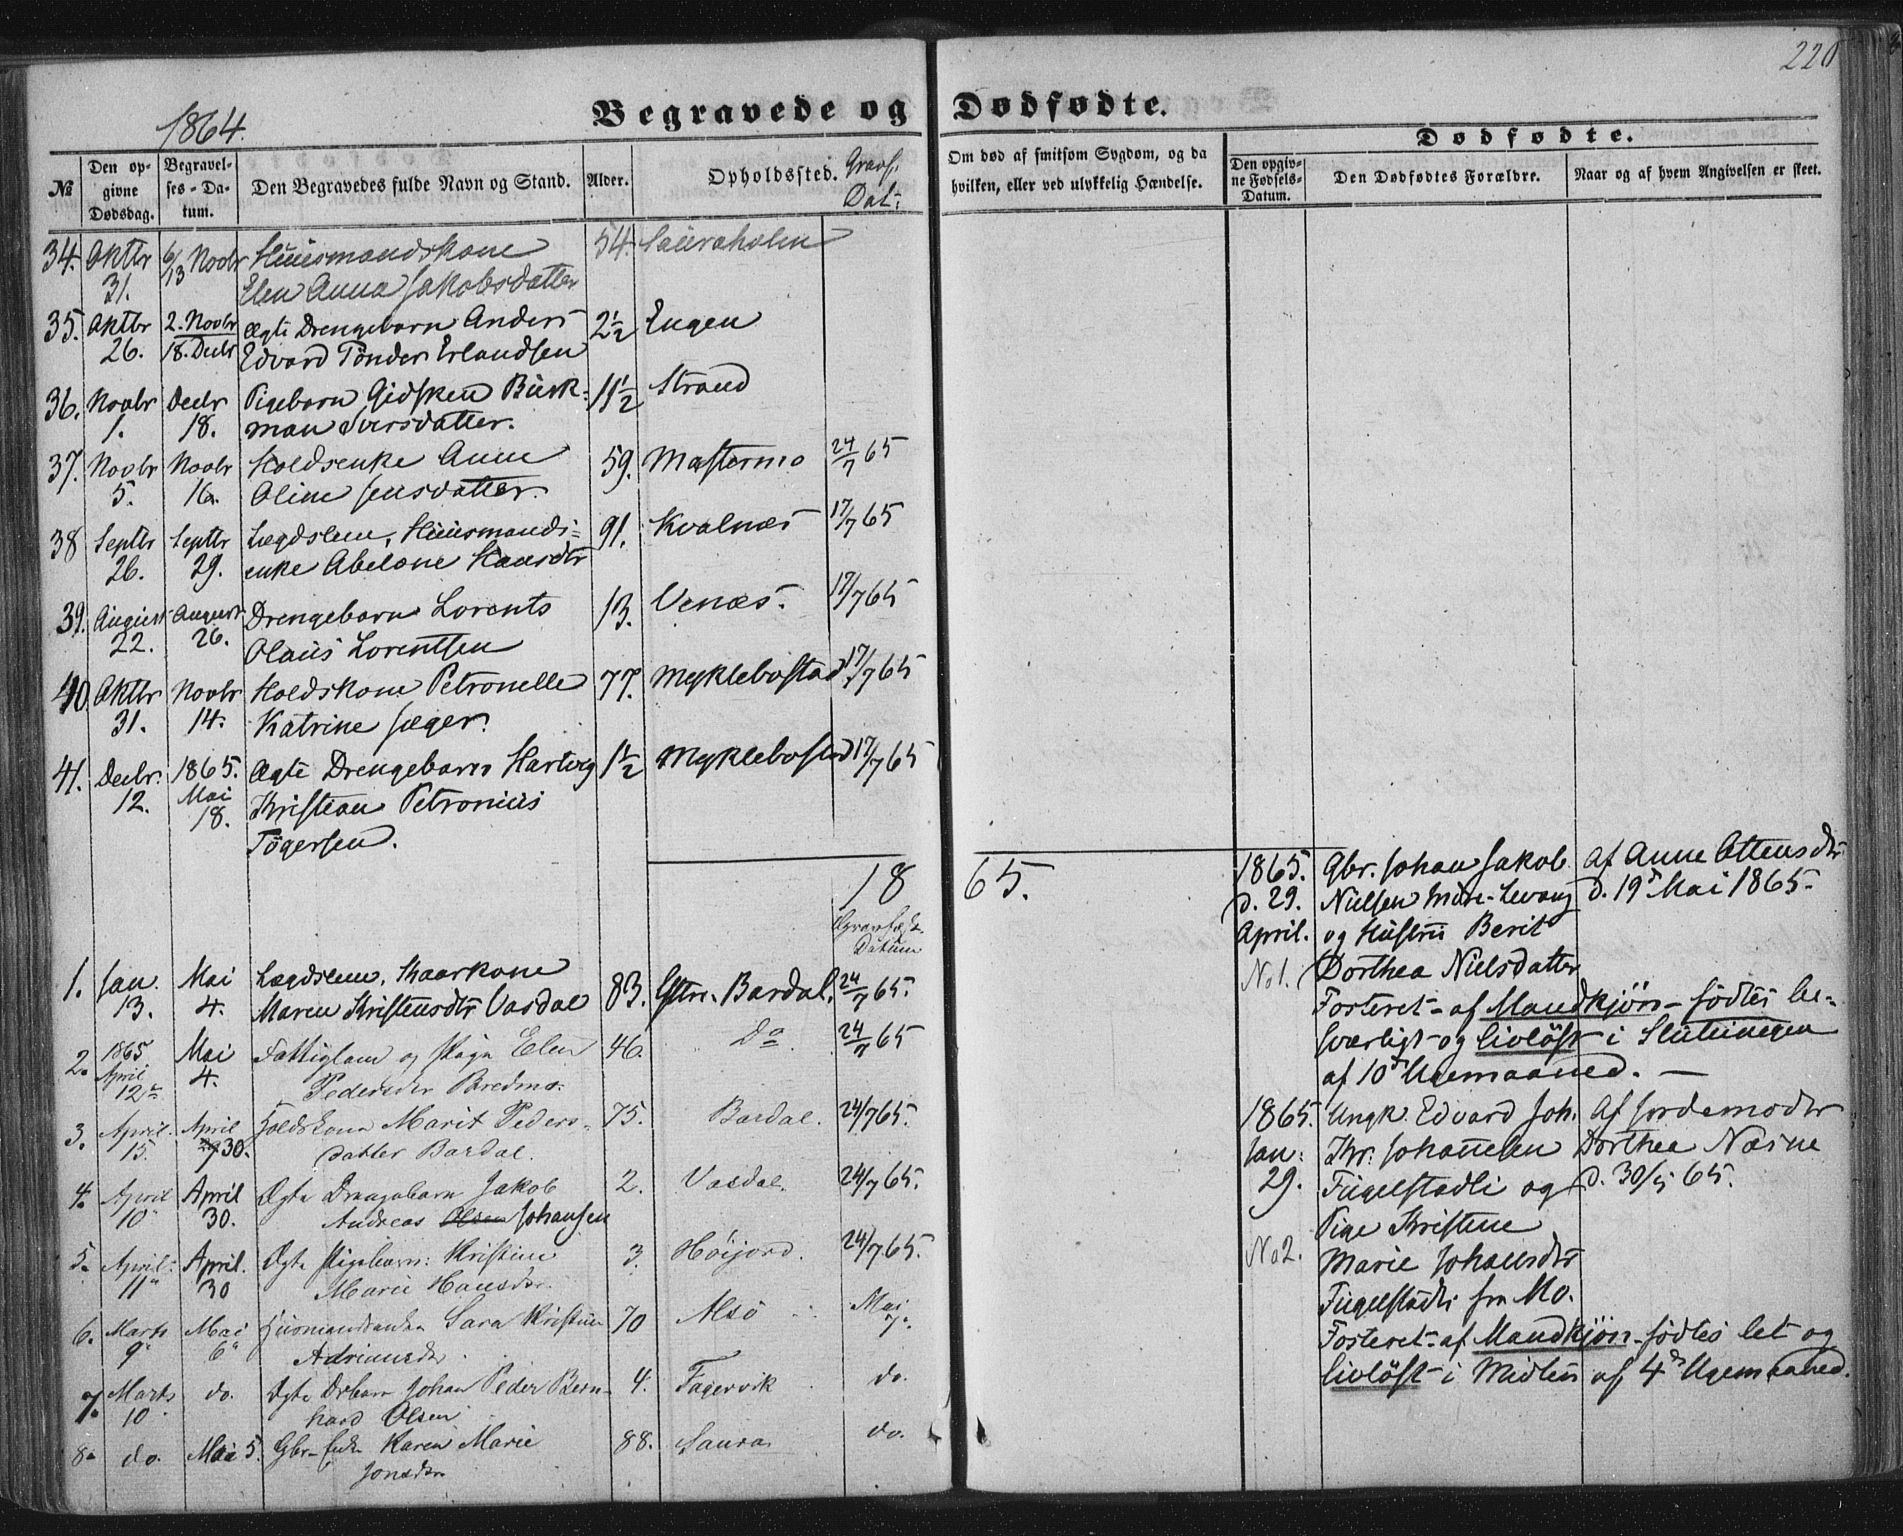 220
1864.
Begravede og Dødfødte.
№
Den opgivne Dødsdag.
Begravelses-Datum.
Den Begravedes fulde Navn og Stand.
Alder.
Opholdssted.
Gravf. Dat:
Om død af smitsom Sygdom, og da hvilken, eller ved ulykkelig Hændelse.
Dødfødte.
Den opgivne Fødsels-Datum.
Den Dødfødtes Forældre.
Naar og af hvem Angivelsen er skeet.
34. Oktbr 6/13 Novbr Huusmandskone 54. Sauraholm
31. Elen Anna Jakobsdatter
35. Oktbr 2. Novbr Ægte Drengebarn Anders 2½ Engen
26. 18. Decbr Edvard Tønder Erlandsen
36. Novbr Decbr Pigebarn Gidsken Buck- 11½ Strand
1. 18. man Iversdatter.
37. Novbr Novbr Holdsenke Anne 59. Mastermo 24/7 65
5. 16. Oline Jensdatter.
38 Septbr Septbr Lægdslem, Huusmands- 91. Kvalnæs 17/7 65
26. 29. enke Abelone Hansdtr
39. August August Drengebarn Lorents 13. Venæs. 17/7 65
22. 26. Olaus Lorentsen
40. Oktbr Novbr Holdskone Petronelle 77. Myklebostad 17/7 65
31. 14. Katrine Jæger.
41. Decbr. 1865. Ægte Drengebarn Hartvig 1½ Myklebostad 17/7 65
12. Mai Kristian Petronius
18. Tøgersen.
18 65.
Gravfæst. Datum
1. Jan. Mai Lægdslem, Kaarkone 83. Ystre-Bardal. 24/7 65.
13. 4. Maren Kristensdtr Vasdal
2. 1865 Mai Fattiglem og Pige Elen 46. Do 24/7 65
April 12te 4. Pedersdtr Bredmo.
3. April. April Holdskone Marit Peders- 75. Bardal. 24/7 65.
15. 30. datter Bardal.
4. April April Ægte Drengebarn Jakob 2. Vasdal. 24/7 65.
10 30. Andreas Olsen Johansen
5. April. April. Ægte Pigebarn: Kristine 3. Höijord. 24/7 65.
11 30 Marie Hansdtr.
6. Marts Mai Husmandsenke Sara Kristine 70 Alsö Mai
9 6 Adriansdtr. 7.
7. Marts do. Ægte Drbarn Johan Peder Bern- 4. Fagervik do.
10 hard Olsen
8. do. Mai 5. Gbr-enke Karen Marie 88. Saura do.
Jonsdtr
1865. Gbr. Johan Jakob Af Anne Ottensdtr
d. 29. Nielsen Midt-Levang d. 19de Mai 1865.
April. og Hustru Berit
No 1. Dorthea Nielsdatter
Fosteret af Mandkjön - födtes be-
sværligt og livlöst i Slutningen
af 10de Ugemaaned. —
1865. Ungk. Edvard Joh. Af Jordemoder
Jan: Kr. Johannesen Dorthea Næsne
29. Fugelstadli og d. 30/5 65.
Pige Kristine
No 2. Marie Johansdtr
Fugelstadli fra Mo.
Fosteret af Mandkjön födtes let og
livlöst i Midten af 4de Ugemaaned.